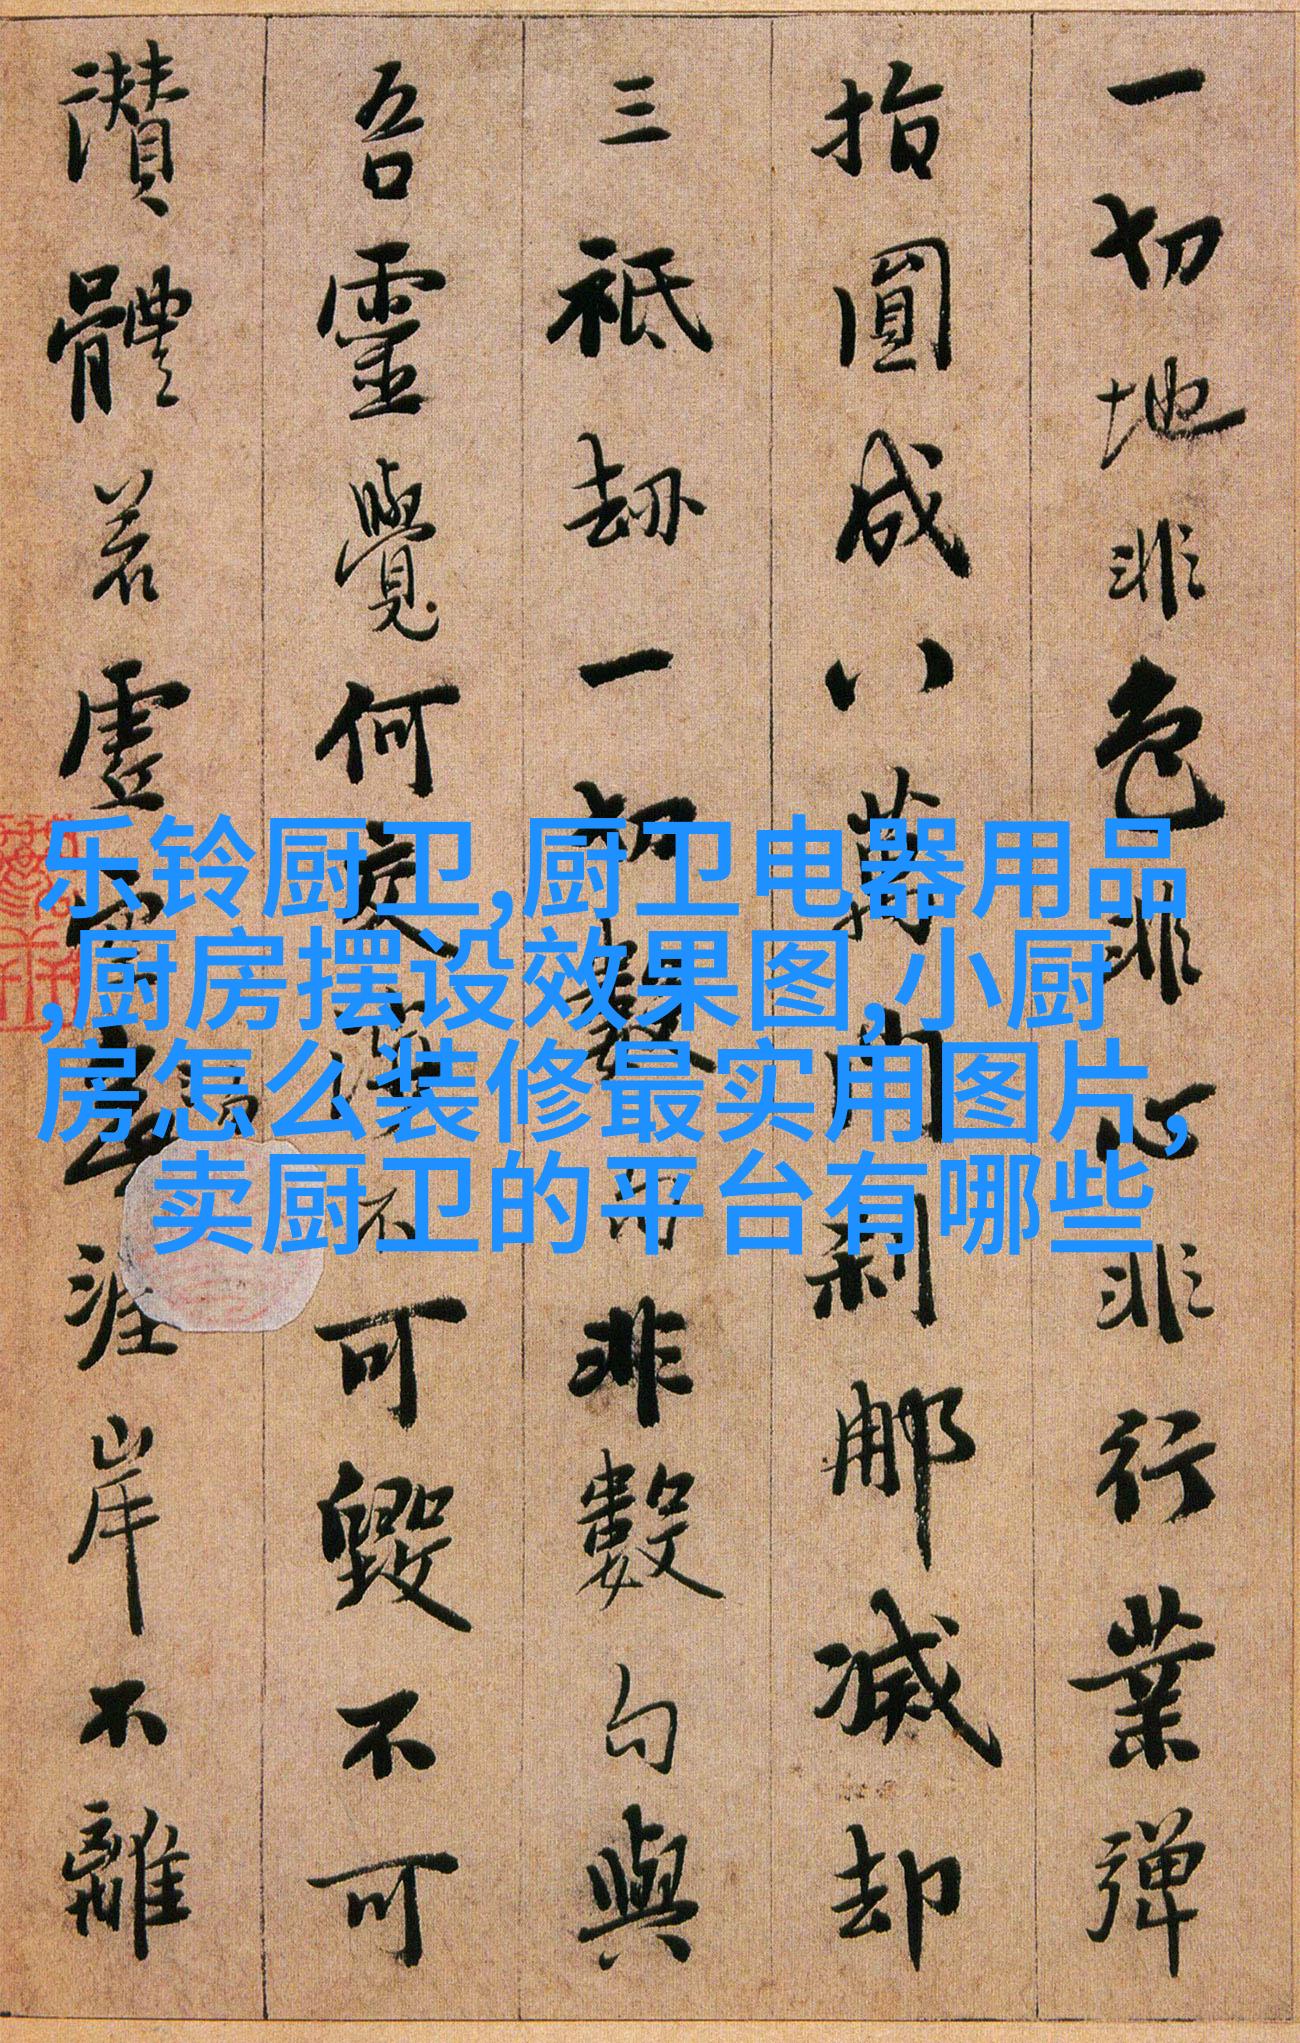 一切地非色非心非行業彈
指圓成八萬門刹那滅却
三祇劫一切數句非數句與
吾靈覺何交涉不可毀不可
讚體若虛空涯岸不離
乐铃厨卫,厨卫电器用品
,厨房摆设效果图,小厨
房怎么装修最实用图片,
卖厨卫的平台有哪些